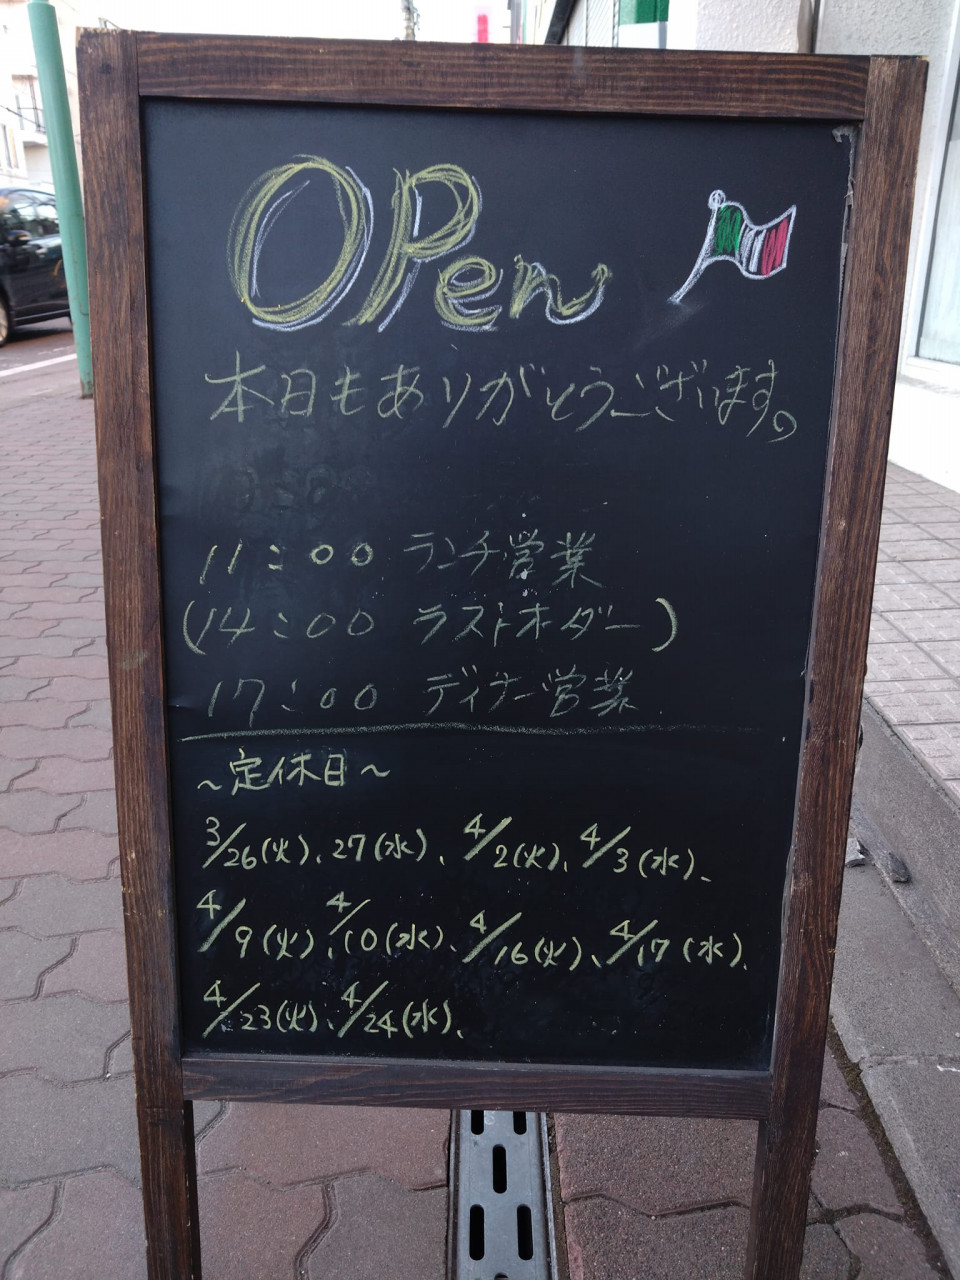 OPen
本日もありがとうございます。
11:00 ランチ営業
(14:00 ラストオーダー)
17:00 ディナー営業
~定休日~
3/26(火)、27(水)、4/2(火)、4/3(水)、
4/9(火)、4/10(水)、4/16(火)、4/17(水)、
4/23(火)、4/24(水)、